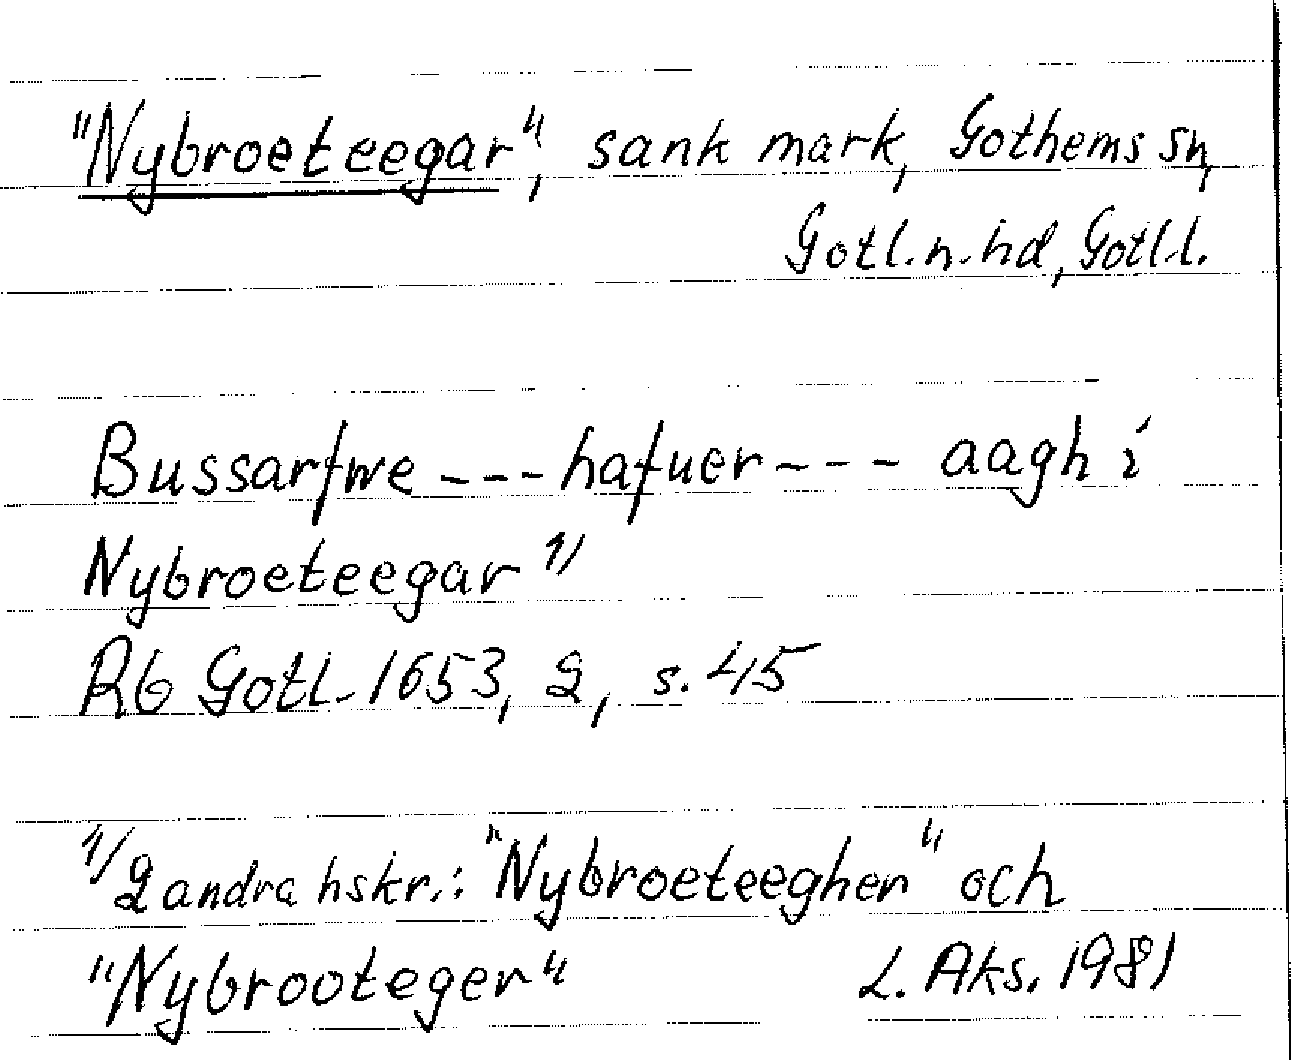 "Nybroeteegar", sank mark, Gothems sn,
Gotl. n. hd, Gotl. l.
Bussarfwe --- hafuer --- aagh i
Nybroeteegar 1)
Rb Gotl. 1653, 2, s. 45
1) 2 andra hskr.: "Nybroeteegher" och
"Nybrooteger" L. Aks. 1981